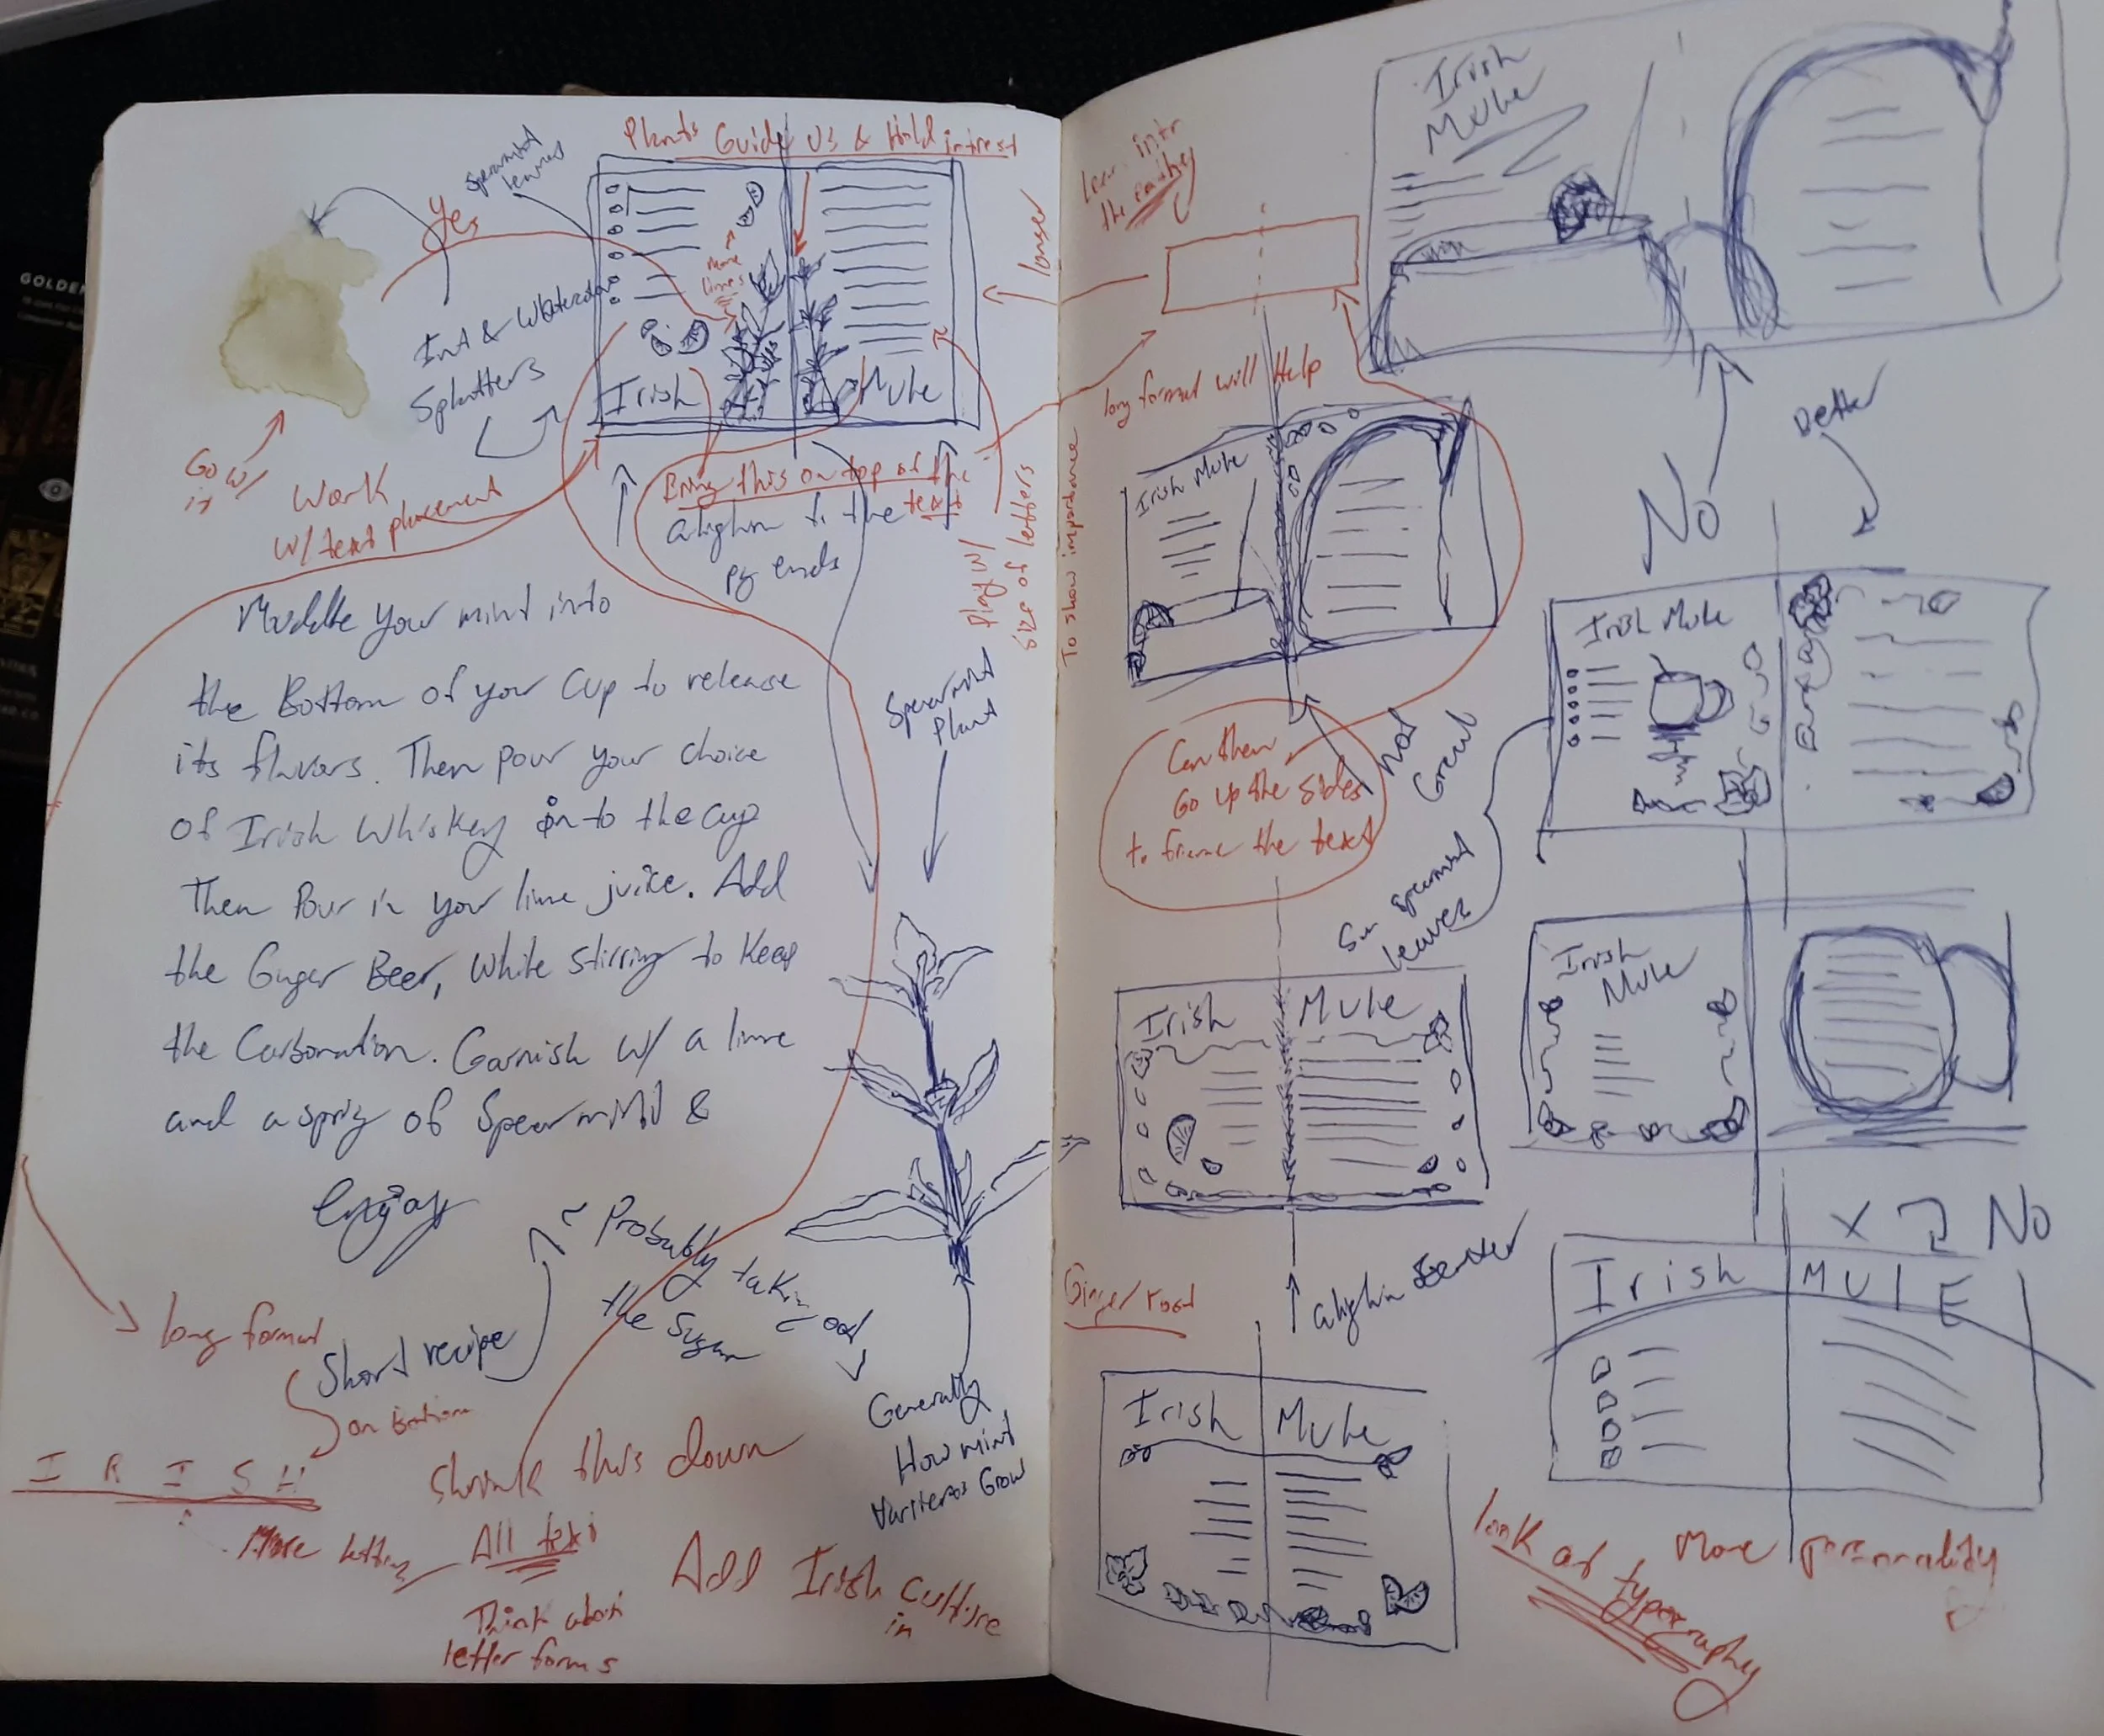 Plants Guide us & Hold intrest
Spearmint
leaves
Yes
more
limes
longer
Splatters
Irish
Mule
Go w/
it
Work
w/ text placement
Bring this on top of the
text
alighn to the
pg ends
Play w/
size of letters
To show importance
Muddle your mind into
the Bottom of your Cup to release
its flavors. Then pour your choice
of Irish Whiskey into the cup
Then Pour in your lime juice. Add
the Ginger Beer, While stirring to Keep
the Carbonation. Garnish w/ a lime
and a sprig of Spearmint &
Enjoy
Spearmint
Plant
~ Probably taking out
the Sugar
long format
Short recipe
I R I S H
Shrink this down
More
All text
Think about
letter forms
Add Irish culture
in
Generally
How mint
Grow
long format will Help
Irish
Mule
Better
No
Irish Mule
Can then
Go up the sides
to frame the text
Not
Great
Irish Mule
Spearmint
leaves
Irish
Mule
Irish
Mule
alighn
Ginger root
X No
Irish
MULE
Irish
Mule
look at typography
More personality
GOLDEN